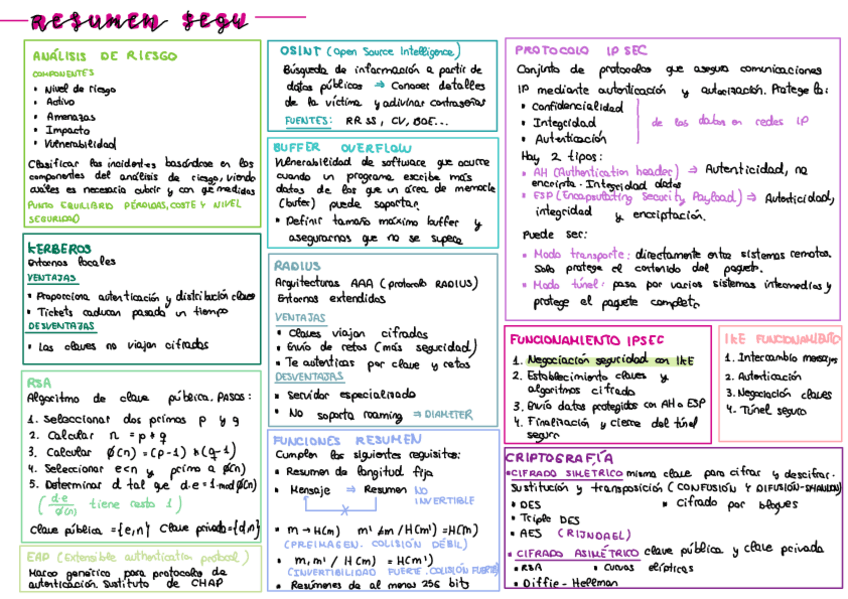 RESUMEN SEGU
ANÁLISIS DE RIESGO
COMPONENTES
• Nivel de riesgo
• Activo
• Amenazas
• Impacto
• Vulnerabilidad
Clasificar los incidentes basándose en los
componentes del análisis de riesgo, viendo
cuáles es necesario cubrir y con que medidas
PUNTO EQUILIBRIO PÉRDIDAS, COSTE Y NIVEL
SEGURIDAD
KERBEROS
Entornos locales
VENTAJAS
• Proporciona autenticación y distribución claves
• Tickets caducan pasado un tiempo
DESVENTAJAS
• Las claves no viajan cifradas
RSA
Algoritmo de clave pública. Pasos:
1. Seleccionar dos primos p y q
2. Calcular n = p * q
3. Calcular Ø(n) = (p-1) * (q-1)
4. Seleccionar e<n y primo a Ø(n)
5. Determinar d tal que d·e = 1 mod Ø(n)
( d·e / Ø(n) tiene resto 1 )
Clave pública = {e,n} Clave privada = {d,n}
EAP (Extensible authentication protocol)
Marco genérico para protocolos de
autenticación. Sustituto de CHAP
OSINT (Open Source Intelligence)
Búsqueda de información a partir de
datos públicos ⇒ Conocer detalles
de la víctima y adivinar contraseñas
FUENTES: RR SS, CV, BOE...
BUFFER OVERFLOW
Vulnerabilidad de software que ocurre
cuando un programa escribe más
datos de los que un área de memoria
(buffer) puede soportar.
• Definir tamaño máximo buffer y
asegurarnos que no se supera
RADIUS
Arquitecturas AAA (protocolo RADIUS)
Entornos extendidos
VENTAJAS
• Claves viajan cifradas
• Envío de retos (más seguridad)
• Te autenticas por clave y retos
DESVENTAJAS
• Servidor especializado
• No soporta roaming ⇒ DIAMETER
FUNCIONES RESUMEN
Cumplen los siguientes requisitos:
• Resumen de longitud fija
• Mensaje ⇒ Resumen NO
INVERTIBLE
X
• m → H(m) m' ≠ m / H(m') = H(m)
(PREIMAGEN. COLISIÓN DÉBIL)
• m, m' / H(m) = H(m')
(INVERTIBILIDAD FUERTE. COLISIÓN FUERTE)
• Resúmenes de al menos 256 bits
PROTOCOLO IP SEC
Conjunto de protocolos que asegura comunicaciones
IP mediante autenticación y autorización. Protege la:
• Confidencialidad
• Integridad de los datos en redes IP
• Autenticación
Hay 2 tipos:
• AH (Authentication header) ⇒ Autenticidad, no
encripta. Integridad datos
• ESP (Encapsulating Security Payload) ⇒ Autenticidad,
integridad y encriptación.
Puede ser:
• Modo transporte: directamente entre sistemas remotos.
Solo protege el contenido del paquete.
• Modo túnel: pasa por varios sistemas intermedios y
protege el paquete completo
FUNCIONAMIENTO IPSEC
1. Negociación seguridad con IKE
2. Establecimiento claves y
algoritmos cifrado
3. Envío datos protegidos con AH o ESP
4. Finalización y cierre del túnel
seguro
IKE FUNCIONAMIENTO
1. Intercambio mensajes
2. Autenticación
3. Negociación claves
4. Túnel seguro
CRIPTOGRAFÍA
• CIFRADO SIMÉTRICO misma clave para cifrar y descifrar.
Sustitución y transposición (CONFUSIÓN Y DIFUSIÓN-SHANNON)
• DES • Cifrado por bloques
• Triple DES
• AES (RIJNDAEL)
• CIFRADO ASIMÉTRICO clave pública y clave privada
• RSA • Curvas elípticas
• Diffie-Hellman